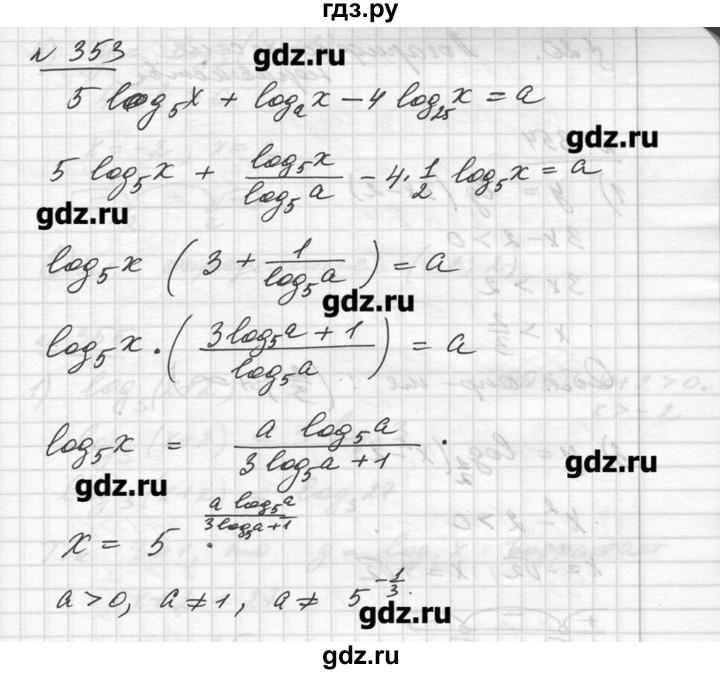 гдз.ру
№ 353
gdz.ru
5 log₅x + logₐx − 4 log₂₅x = a
gdz.ru
5 log₅x + log₅x / log₅a − 4·1/2 log₅x = a
gdz.ru
log₅x (3 + 1/log₅a) = a
gdz.ru
log₅x · ((3log₅a + 1) / log₅a) = a
log₅x = a log₅a / (3 log₅a + 1).
gdz.ru
gdz.ru
x = 5^(a log₅a / (3log₅a+1)).
a > 0, a ≠ 1, a ≠ 5^(−1/3).
gdz.ru
gdz.ru